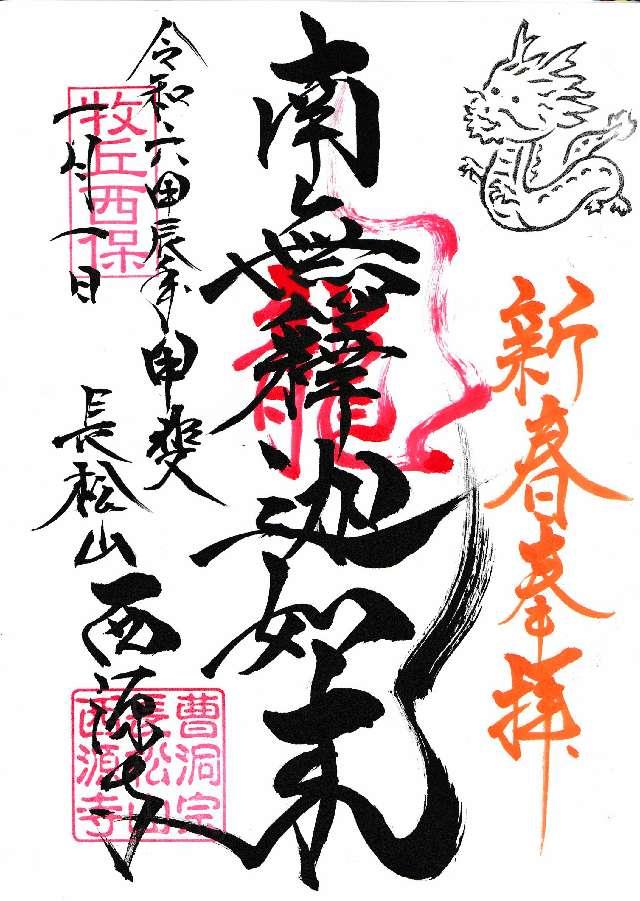 新春奉拝
南無釋迦如来
龍
令和六甲辰年 甲斐
一月一日 長松山 西源寺
牧丘西保
曹洞宗
長松山
西源寺